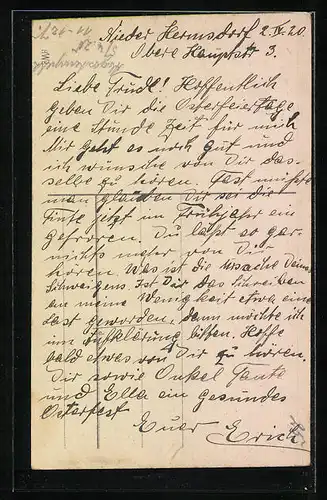 Nieder Hermsdorf 2.IV.20.
Obere Hauptstr 3.
Liebe Trudl! Hoffentlich
geben Dir die Osterfeiertage
eine Stunde Zeit für mich
Mir geht es noch gut und
ich wünsche von Dir das-
selbe zu hören. Fast müsste
man glauben Dir sei die
Tinte jetzt im Frühjahr ein
gefroren. Du läßt so gar-
nichts mehr von Dir
hören. Was ist die Ursache Deines
Schweigens. Ist Dir das Schreiben
an meine Wenigkeit etwa eine
Last geworden, dann möchte ich
um Aufklärung bitten. Hoffe
bald etwas von Dir zu hören.
Dir sowie Onkel Tante
und Ella ein gesundes
Osterfest
Euer Erich